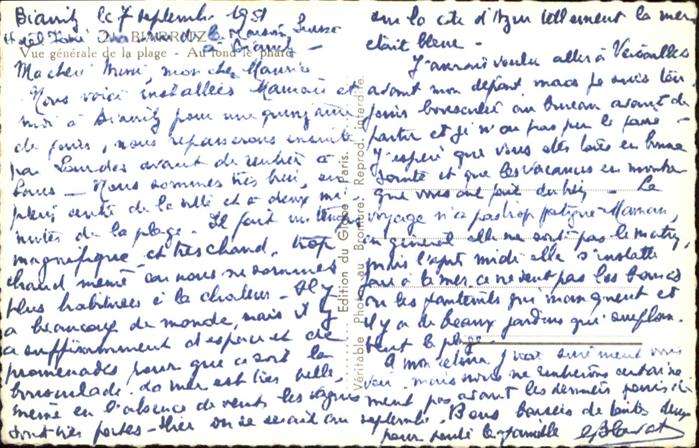 Biarritz le 7 septembre 1951
BIARRITZ
Vue générale de la plage - Au fond le phare
Ma chère Mimi, mon cher Maurice
Nous voici installées Maman et
moi à Biarritz pour une quinzaine
de jours, nous repasserons ensuite
par Lourdes avant de rentrer à
Nous sommes très bien, en
plein centre de la ville et à deux mi
nutes de la plage - Il fait un temps
magnifique et très chaud, trop
chaud même car nous ne sommes
plus habituées à la chaleur - Il y
a beaucoup de monde, mais il y
a suffisamment d'espaces et de
promenades pour que ce soit la
bousculade. La mer est très belle
même en l'absence de vents les vagues
sont très fortes - Hier on se serait cru
sur la côte d'Azur tellement la mer
était bleue -
J'aurais voulu aller à Versailles
avant mon départ mais je suis
toujours bousculée au bureau avant de
partir et je n'ai pas pu le faire -
J'espère que vous êtes tous en bonne
santé et que les vacances en montagne
que vous ont fait du bien - Le
voyage n'a pas trop fatigué Maman,
en général elle ne sort pas le matin,
mais l'après midi elle s'installe
face à la mer, ce ne sont pas les bancs
ou les fauteuils qui manquent et
il y a de beaux jardins qui surplom-
bent la plage.
A mon retour j'irai sûrement vous
voir, mais nous ne rentrerons certaine
ment pas avant les derniers jours de
septembre. Bons baisers de toutes deux
pour toute la famille
Edition du Globe - Paris.
Véritable Photo au Bromure. Reprod. interdite.